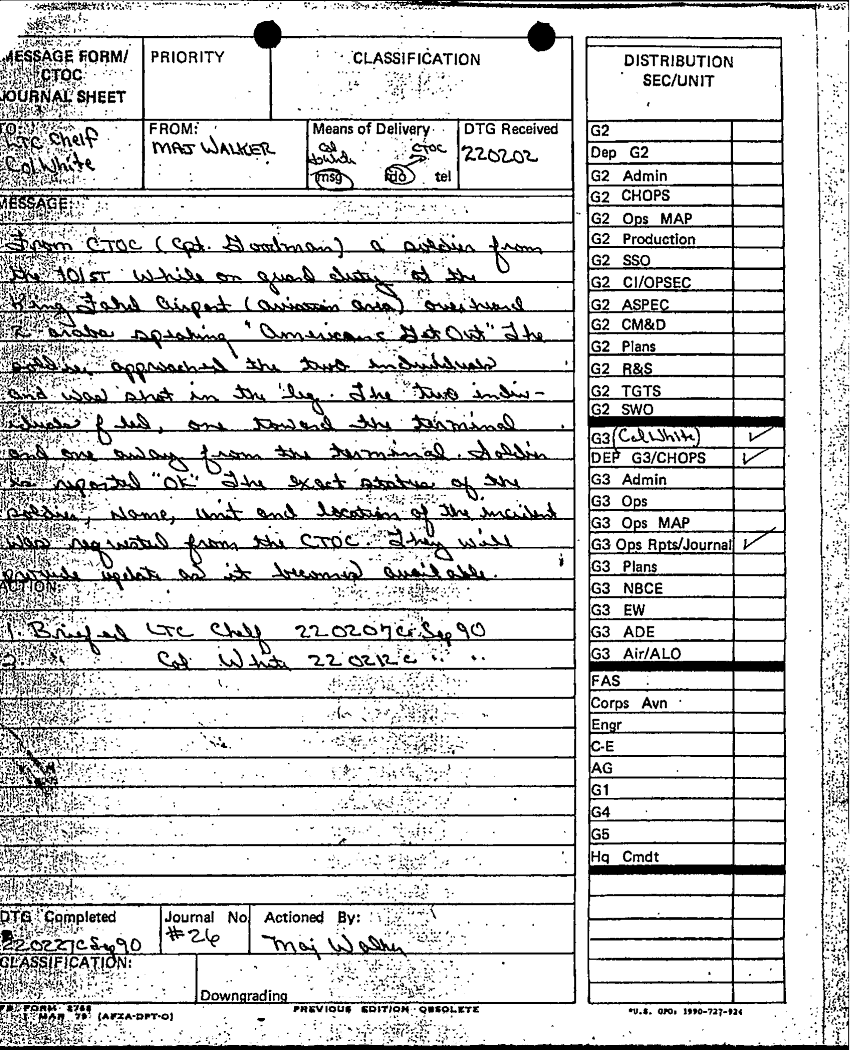 MESSAGE FORM/
CTOC
JOURNAL SHEET
PRIORITY
CLASSIFICATION
TO:
LTC Chelf
Col White
FROM:
MAJ WALKER
Means of Delivery
CTOC
msg
tel
DTG Received
220202
MESSAGE:
From CTOC (Cpt. Goodman) a soldier from
the 101st while on guard duty at the
King Fahd Airport (aviation area) overheard
2 arabs speaking "Americans Get Out" The
soldier approached the two individuals
and was shot in the leg. The two indiv-
iduals fled, one toward the terminal
and one away from the terminal. Soldier
is reported "OK" The exact status of the
soldier, name, unit and location of the incident
was requested from the CTOC. They will
provide update as it becomes available.
ACTION:
1. Briefed LTC Chelf 220207C Sep 90
2 " Col White 220212C " "
DTG Completed
220227C Sep 90
Journal No
#26
Actioned By:
Maj Walker
CLASSIFICATION:
Downgrading
FORM
1 MAR 79 (AFZA-DPT-O)
PREVIOUS EDITION OBSOLETE
DISTRIBUTION
SEC/UNIT
G2
Dep G2
G2 Admin
G2 CHOPS
G2 Ops MAP
G2 Production
G2 SSO
G2 CI/OPSEC
G2 ASPEC
G2 CM&D
G2 Plans
G2 R&S
G2 TGTS
G2 SWO
G3 (Col White) ✓
DEP G3/CHOPS ✓
G3 Admin
G3 Ops
G3 Ops MAP
G3 Ops Rpts/Journal ✓
G3 Plans
G3 NBCE
G3 EW
G3 ADE
G3 Air/ALO
FAS
Corps Avn
Engr
C-E
AG
G1
G4
G5
Hq Cmdt
*U.S. GPO: 1990-727-924